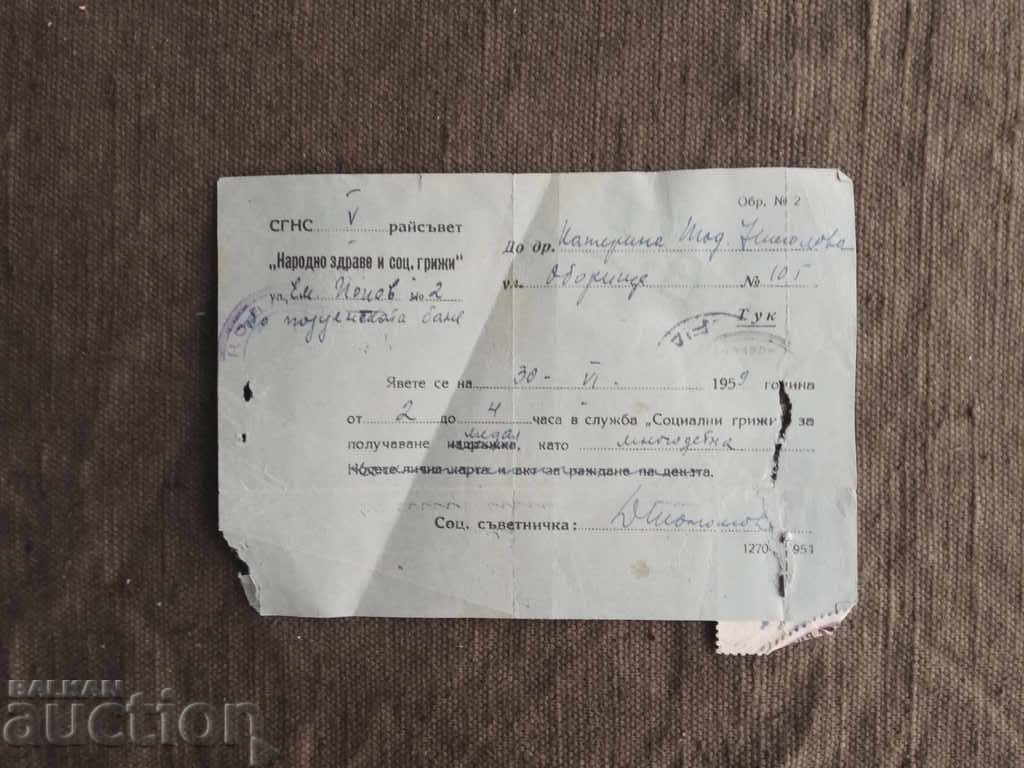 Обр. № 2
СГНС V райсъвет
До др. Катерина Тод. Николова
„Народно здраве и соц. грижи“
ул. Оборище № 105
ул. Ем. Попов № 2
Тук
до подуенската баня
Явете се на 30 - VI. 1959 година
от 2 до 4 часа в служба „Социални грижи“ за
медал
получаване издръжка, като многодетна
Носете лична карта и акт за раждане на децата.
Соц. съветничка:
1270 951
BALKAN
auction